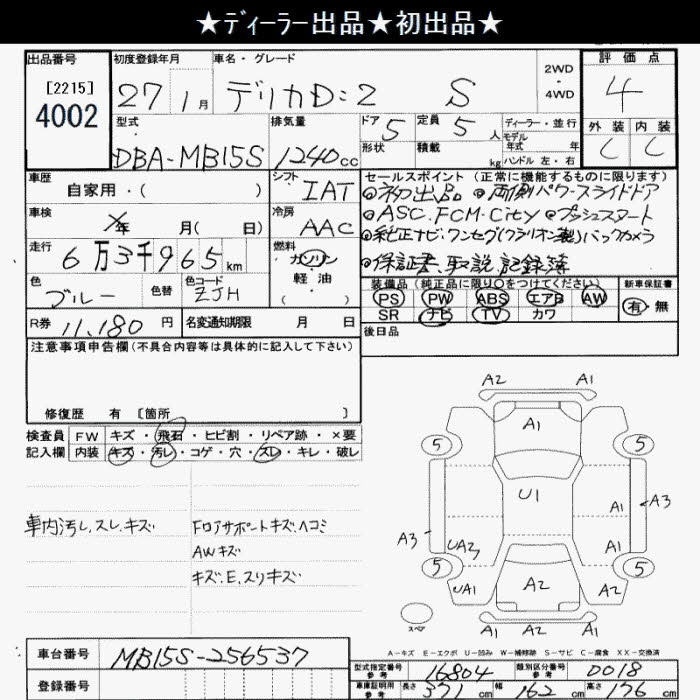 ★ディーラー出品★初出品★
出品番号 初度登録年月 車名・グレード 評価点
[2215]
4002
27 1月 デリカD:2 S
2WD
4WD
4
型式 排気量 ドア 5 定員 5人 ディーラー・並行
モデル年式 年
ハンドル 左・右
外装 内装
C C
DBA-MB15S 1240cc 形状 積載 kg
車歴 シフト IAT セールスポイント (正常に機能するものに限ります)
自家用・( )
◎初出品。◎両側パワースライドドア
車検 年 月( 日) 冷房 AAC
◎ASC.FCM.City ◎プッシュスタート
走行 6万3千965km 燃料 ガソリン・軽油・( )
◎純正ナビ・ワンセグ(クラリオン製)バックカメラ
◎保証書、取説、記録簿
色 ブルー 色替 色コード ZJH
装備品 (純正品に限り○をつけてください) 新車保証書
PS PW ABS エアB AW 有・無
SR ナビ TV カワ
R券 11,180円 名変通知期限 月 日
後日品
注意事項申告欄(不具合内容等は具体的に記入して下さい)
修復歴 有 [箇所 ]
検査員 FW キズ・飛石・ヒビ割・リペア跡・×要
記入欄 内装 キズ・汚レ・コゲ・穴・スレ・キレ・破レ
車内汚レ、スレ、キズ
Fロアサポートキズ、ヘコミ
AWキズ
キズ、E、スリキズ
A2 A1
A1
5 5
U1
A1 A3
A3 UA2 A1
5 5
UA1 A2 A2
スペア
A1 A1 A1
A-キズ E-エクボ U-凹み W-補修跡 S-サビ C-腐食 XX-交換済
車台番号 MB15S-256537
登録番号
型式指定番号 参考 16804 類別区分番号 参考 0018
車庫証明用 参考 長さ 371cm 幅 162cm 高さ 176cm